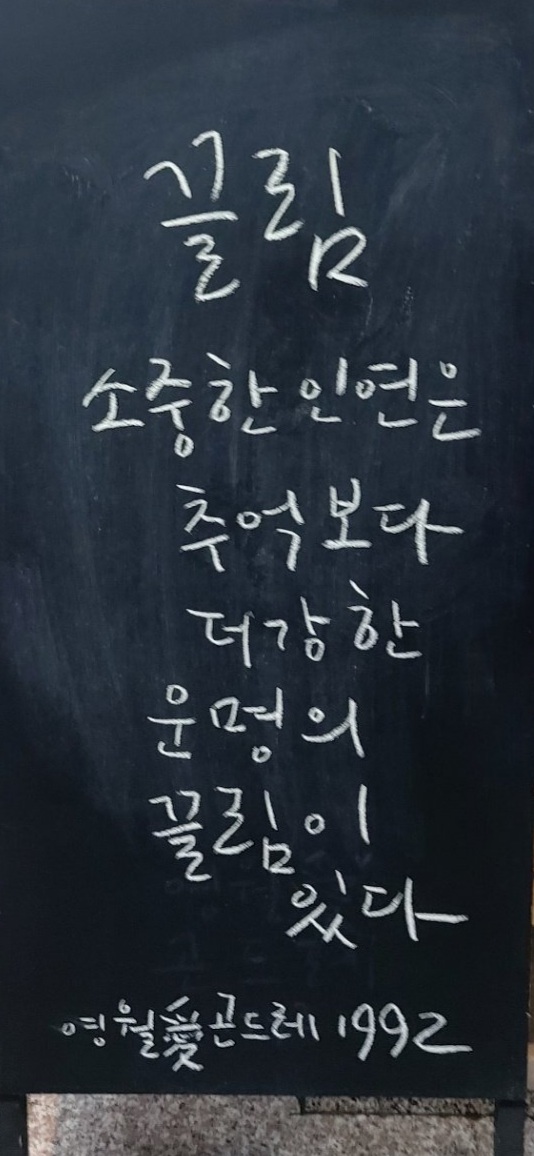 끌림
소중한 인연은
추억보다
더강한
운명의
끌림이
있다
영월愛곤드레 1992